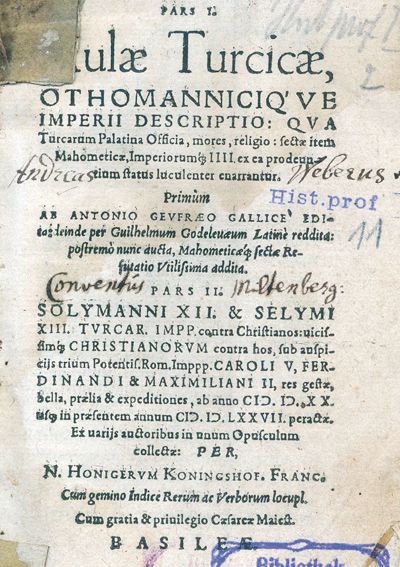 PARS I.
Aulæ Turcicæ,
OTHOMANNICIQ'VE
IMPERII DESCRIPTIO: QVA
Turcarum Palatina Officia, mores, religio: sectæ item
Mahometicæ, Imperiorumq́; IIII. ex ea prodeun-
Andreas tium status luculenter enarrantur. Weberus
Primùm
Hist. prof
AB ANTONIO GEVFRÆO GALLICE' EDI-
ta: deinde per Guilhelmum Godeleuæum Latinè reddita:
11
postremò nunc aucta, Mahometicæq́; sectæ Re-
futatio Vtilissima addita.
Conventûs PARS II. Miltenberg:
SOLYMANNI XII. & SELYMI
XIII. TVRCAR. IMPP. contra Christianos: uicis-
simq́; CHRISTIANORVM contra hos, sub auspi-
cijs trium Potentiss. Rom. Imppp. CAROLI V, FER-
DINANDI & MAXIMILIANI II, res gestæ,
bella, prælia & expeditiones, ab anno CIƆ. IƆ. XX.
usq́; in præsentem annum CIƆ. IƆ LXXVII. peractæ.
Ex uarijs auctoribus in unum Opusculum
collectæ: PER,
N. HONIGERVM KONINGSHOF. FRANC.
Cum gemino Indice Rerum ac Verborum locupl.
Cum gratia & priuilegio Cæsareæ Maiest.
BASILEÆ.
Bibliothek